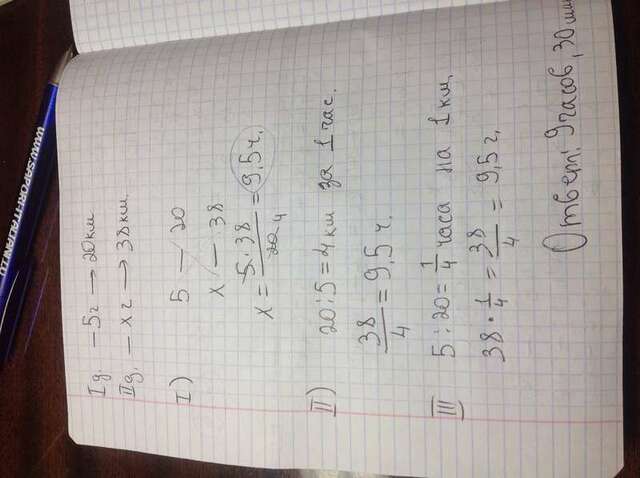 I д. – 5ч → 20 км
II д. – x ч → 38 км.
I)
5 — 20
x — 38
x = 5·38/20 4 = 9,5 ч.
II)
20 : 5 = 4 км за 1 час.
38/4 = 9,5 ч.
III
5 : 20 = 1/4 часа на 1 км.
38 · 1/4 = 38/4 = 9,5 ч.
Ответ: 9 часов, 30 мин